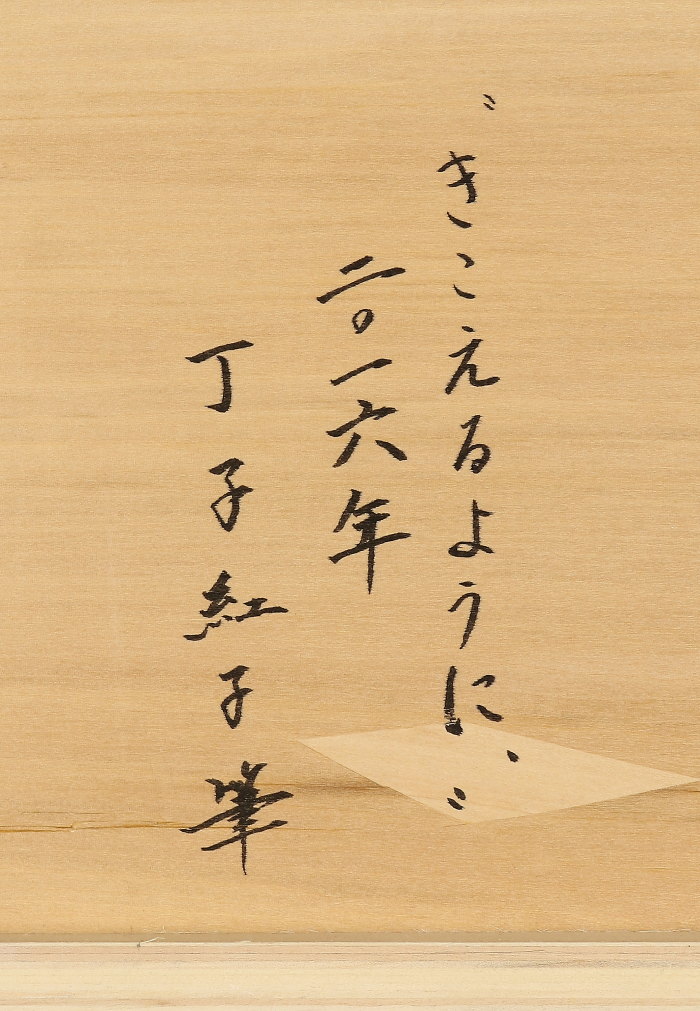 〝きこえるように、〟
二〇一六年
丁子紅子筆